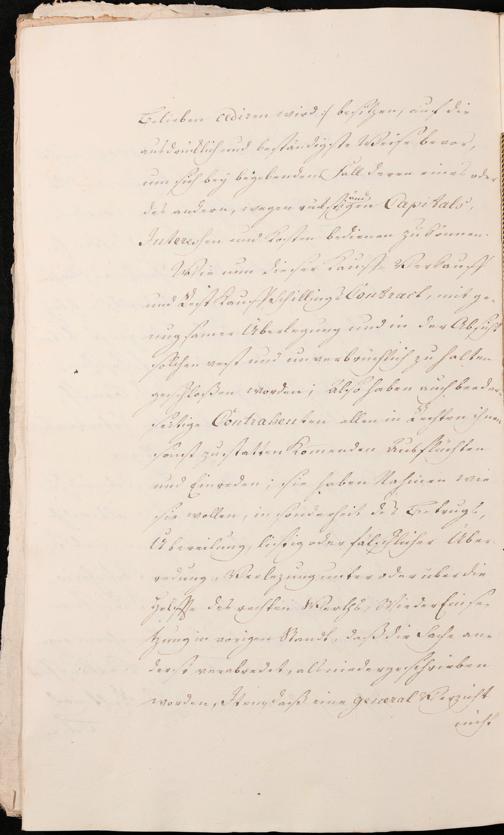 Belieben cediren wird :/ besitzen, auf die
ausdrücklich und beständigste Weise bevor,
um sich bey begebendem Fall deren eines oder
des andern, wegen rückständigen Capitals,
Interessen und Kosten bedienen zu können.
Wie nun dieser Kauff- Verkauff
und Rest Kauffschillings Contract, mit ge-
nugsamer Überlegung und in der Absicht
solchen vest und unverbrüchlich zu halten
geschloßen worden; Also haben auch beeder-
seitige Contrahenten allen in Rechten ihnen
sonst zustatten komenden Ausflüchten
und Einreden, sie haben Nahmen wie
sie wollen, in sonderheit des Betrugs,
Übereilung, listig oder fälschlicher Über-
redung, Verlezung unter oder über die
Helffte des rechten Werths, WiederEinse-
tzung in vorigen Standt, daß die Sache an-
derst verabredet, als niedergeschrieben
worden, Item, daß eine general Verzicht
nicht